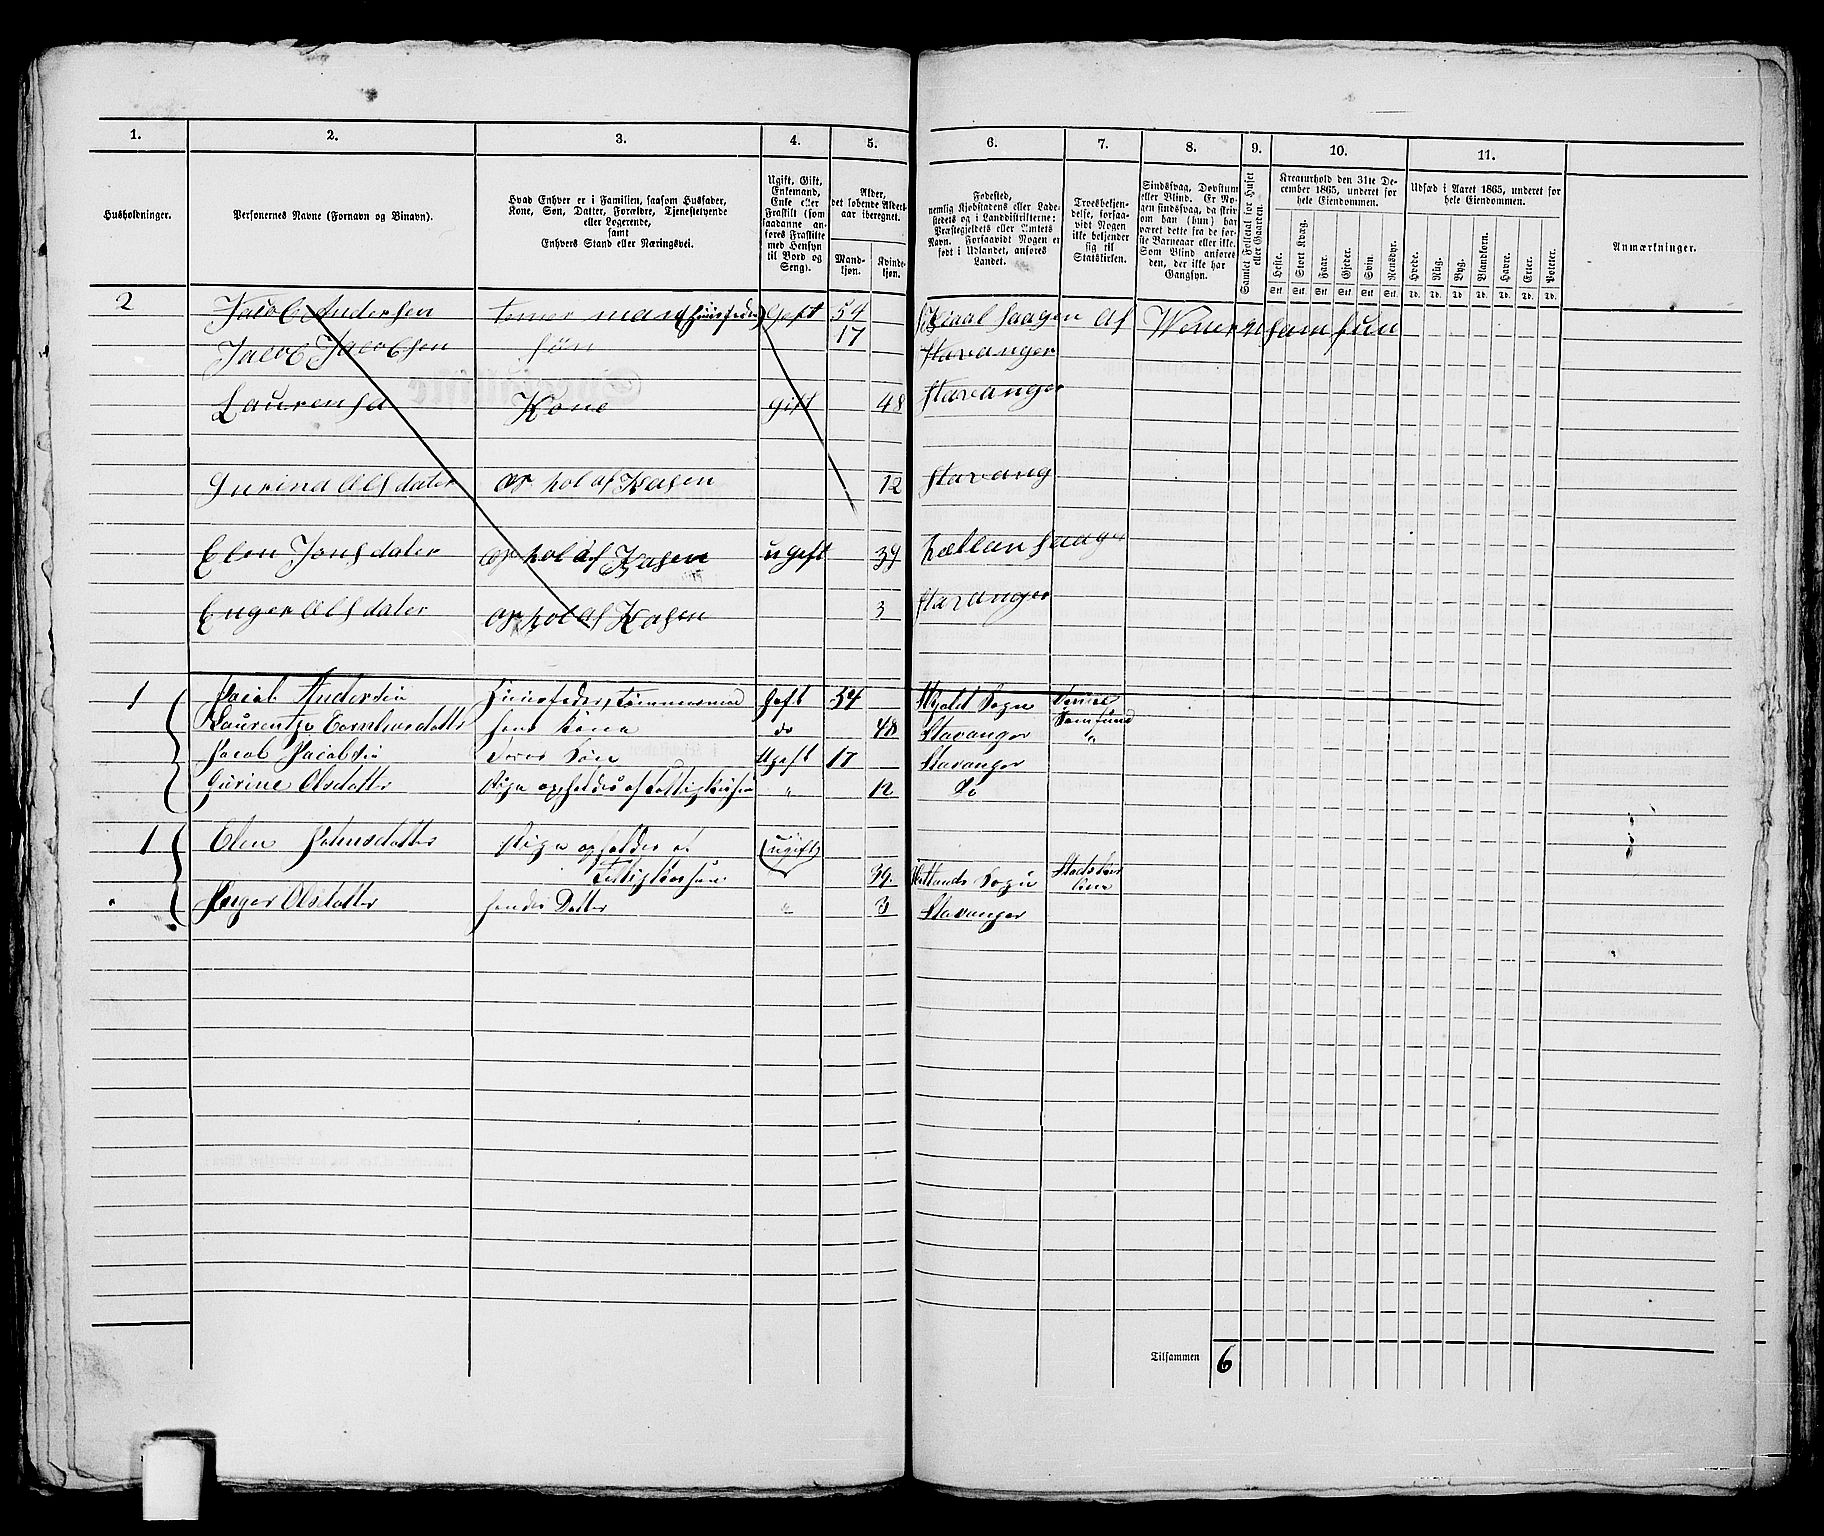 1. 2. 3. 4. 5. 6. 7. 8. 9. 10. 11.
Husholdninger.
Personernes Navne (Fornavn og Binavn).
Hvad Enhver er i Familien, saasom Husfader,
Kone, Søn, Datter, Forældre, Tjenestetyende
eller Logerende,
samt
Enhvers Stand eller Næringsvei.
Ugift, Gift,
Enkemand,
Enke eller
Fraskilt (som
saadanne an-
føres Fraskilte
med Hensyn
til Bord og
Seng).
Alder,
det løbende Alders-
aar iberegnet.
Mand-
kjøn.
Kvinde-
kjøn.
Fødested,
nemlig Kjøbstadens eller Lade-
stedets og i Landdistrikterne:
Præstegjeldets eller Amtets
Navn. Forsaavidt Nogen er
født i Udlandet, anføres
Landet.
Troesbekjen-
delse, forsaa-
vidt Nogen
ikke bekjender
sig til
Statskirken.
Sindssvag, Døvstum
eller Blind. Er No-
gen sindssvag, da skri-
ves om han (hun) har
været dette fra de før-
ste Barneaar eller ikke.
Som Blind anføres
den, der ikke har
Gangsyn.
Samlet Folketal for Huset
eller Gaarden.
Kreaturhold den 31te De-
cember 1865, underet for
hele Eiendommen.
Heste. Stort Kvæg. Faar. Gjeder. Svin. Rensdyr.
Stk. Stk. Stk. Stk. Stk. Stk.
Udsæd i Aaret 1865, underet for
hele Eiendommen.
Hvede. Rug. Byg. Blandkorn. Havre. Erter. Poteter.
Td. Td. Td. Td. Td. Td. Td.
Anmærkninger.
2 Jacob Andersen tomer man (huusfader) Geft 54 saagen Af Wener samfun
Jacob Jacobsen søn 17 Stavanger
Laurensa Kone Gift 48 Stavanger
Gurina Olsdater op hol af Kasen 12 Stavang
Elen Jonsdater op hol af Kasen ugeft 39 hætlan saagn
Enger Olsdater op hol af Kasen 3 Stavanger
1 Jacob Andersen Huusfader, tømmermand Geft 54 Sogn Venne
Samfund
Laurentze hans Kone do 48 Stavanger "
Jacob Jacobsen Deres Søn Ugeft 17 Stavanger
Gurine Olsdatter Pige opholdes af Fattigkassen " 12 Do
1 Elen Johnsdatter Pige opholdes af ugift
Fattigkassen 39 Hetlands Sogn Stadskir-
ken
Inger Olsdatter hendes Datter " 3 Stavanger
Tilsammen 6